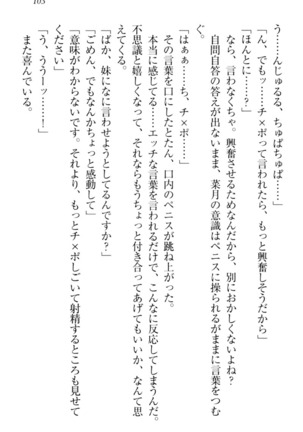 103
う……んじゅるる、ちゅぱちゅぱ……」
「ん、でもッ……チ×ポって言われたら、もっと興奮しそうだから」
「ほんとに……？」
なら、言わなくちゃ。興奮させるためなんだから、別におかしくないよね？
自問自答の答えが出ないまま、菜月の意識はペニスに操られるがままに言葉をつむ
ぐ。
「はぁぁ……ち、チ×ポ……」
その言葉を口にしたとたん、口内のペニスが跳ね上がった。
本当に感じてる……エッチな言葉を言われるだけで、こんなに反応してしまうんだ。
不思議と嬉しくなって、それならもうちょっと付き合ってあげてもいいか、なんて思
えてくる。
「ばか、妹になに言わせようとしてるんですか？」
「ごめん、でもなんかちょっと感動して」
「意味がわからないです。それより、もっとチ×ポしごいて射精するところも見せて
ください」
「う、ううーッ……！」
また喜んでいる。